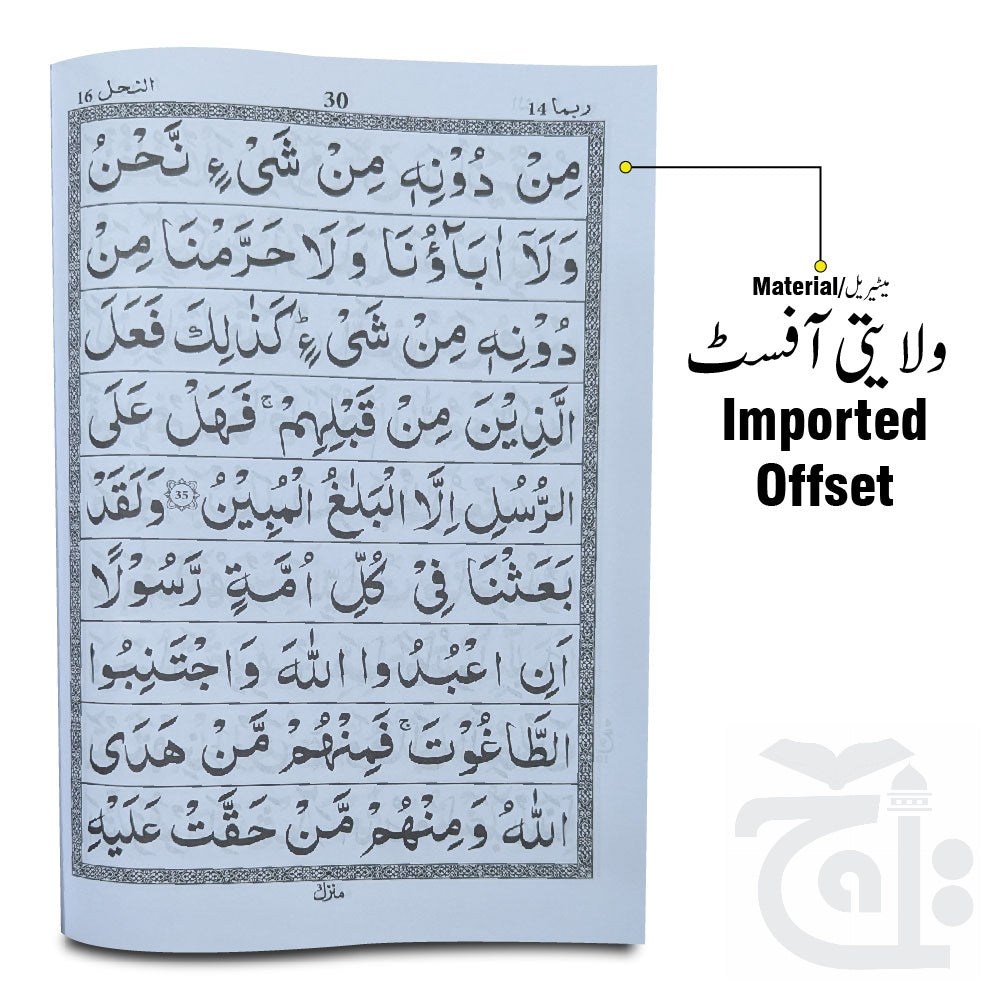 النحل 16
30
ربما 14
مِنْ دُوْنِهٖ مِنْ شَیْءٍ نَّحْنُ
وَلَاۤ اٰبَآؤُنَا وَلَا حَرَّمْنَا مِنْ
دُوْنِهٖ مِنْ شَیْءٍ ؕ كَذٰلِكَ فَعَلَ
الَّذِیْنَ مِنْ قَبْلِهِمْ ۚ فَهَلْ عَلَی
الرُّسُلِ اِلَّا الْبَلٰغُ الْمُبِیْنُ 35 وَلَقَدْ
بَعَثْنَا فِیْ كُلِّ اُمَّةٍ رَّسُوْلًا
اَنِ اعْبُدُوا اللّٰهَ وَاجْتَنِبُوا
الطَّاغُوْتَ ۚ فَمِنْهُمْ مَّنْ هَدَی
اللّٰهُ وَمِنْهُمْ مَّنْ حَقَّتْ عَلَیْهِ
Material/میٹیریل
ولایتی آفسٹ
Imported
Offset